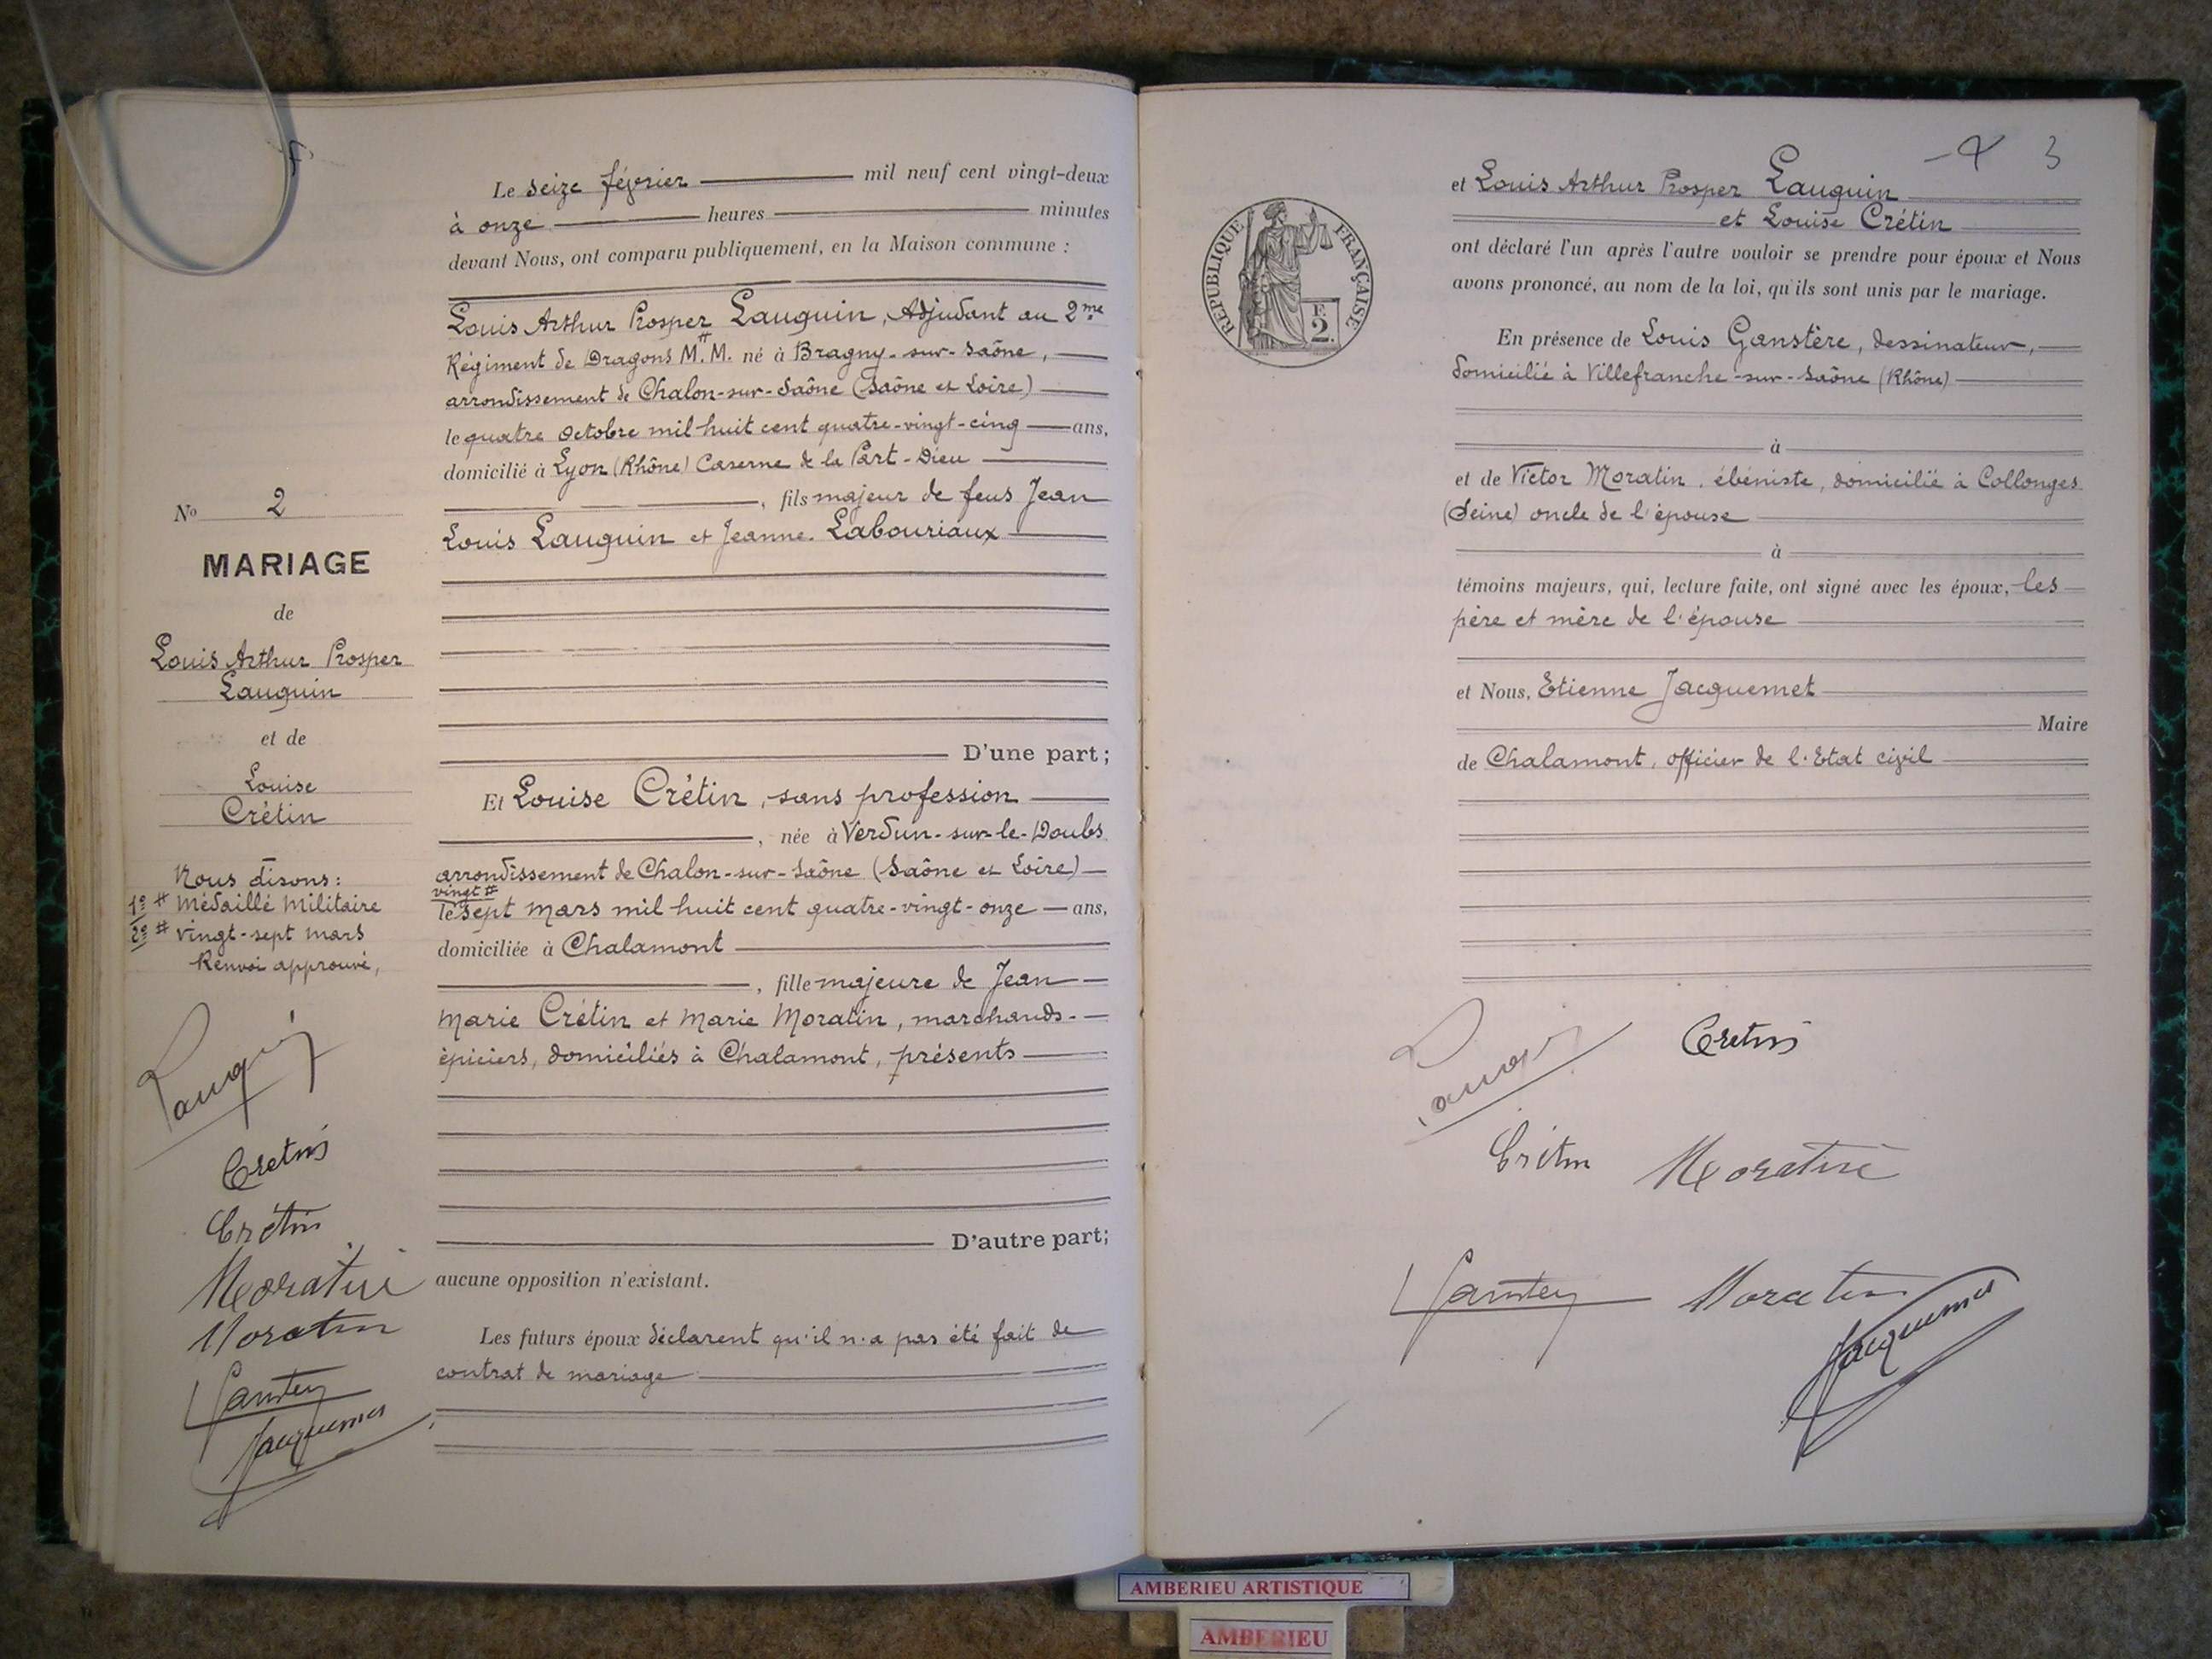 Le seize février mil neuf cent vingt-deux
à onze heures minutes
devant Nous, ont comparu publiquement, en la Maison commune :
Louis Arthur Prosper Lauguin, Adjudant au 2me
Régiment de Dragons M.M. # né à Bragny-sur-Saône,
arrondissement de Chalon-sur-Saône (Saône et Loire)
le quatre Octobre mil huit cent quatre-vingt-cinq ans,
domicilié à Lyon (Rhône) Caserne de la Part-Dieu
, fils majeur de feus Jean
Louis Lauguin et Jeanne Labouriaux
D'une part;
Et Louise Crétin, sans profession
, née à Verdun-sur-le-Doubs
arrondissement de Chalon-sur-Saône (Saône et Loire)
vingt #
le sept Mars mil huit cent quatre-vingt-onze ans,
domiciliée à Chalamont
, fille majeure de Jean
Marie Crétin et Marie Moratin, marchands-
épiciers, domiciliés à Chalamont, présents
D'autre part;
aucune opposition n'existant.
Les futurs époux déclarent qu'il n'a pas été fait de
contrat de mariage
No 2
MARIAGE
de
Louis Arthur Prosper
Lauguin
et de
Louise
Crétin
Nous disons:
1º # Médaillé Militaire
2º # vingt-sept mars
Renvoi approuvé,
Lauguin
Cretin
Crétin
Moratin
Moratin
Jacquemet
3
RÉPUBLIQUE FRANÇAISE
F.
2.
et Louis Arthur Prosper Lauguin
et Louise Crétin
ont déclaré l'un après l'autre vouloir se prendre pour époux et Nous
avons prononcé, au nom de la loi, qu'ils sont unis par le mariage.
En présence de Louis Ganstère, dessinateur,
domicilié à Villefranche-sur-Saône (Rhône)
à
et de Victor Moratin, ébéniste, domicilié à Collonges
(Seine) oncle de l'épouse
à
témoins majeurs, qui, lecture faite, ont signé avec les époux, les
père et mère de l'épouse
et Nous, Etienne Jacquemet
Maire
de Chalamont, officier de l'Etat civil
Lauguin
Cretin
Crétin
Moratin
Moratin
Jacquemet
AMBERIEU ARTISTIQUE
AMBERIEU